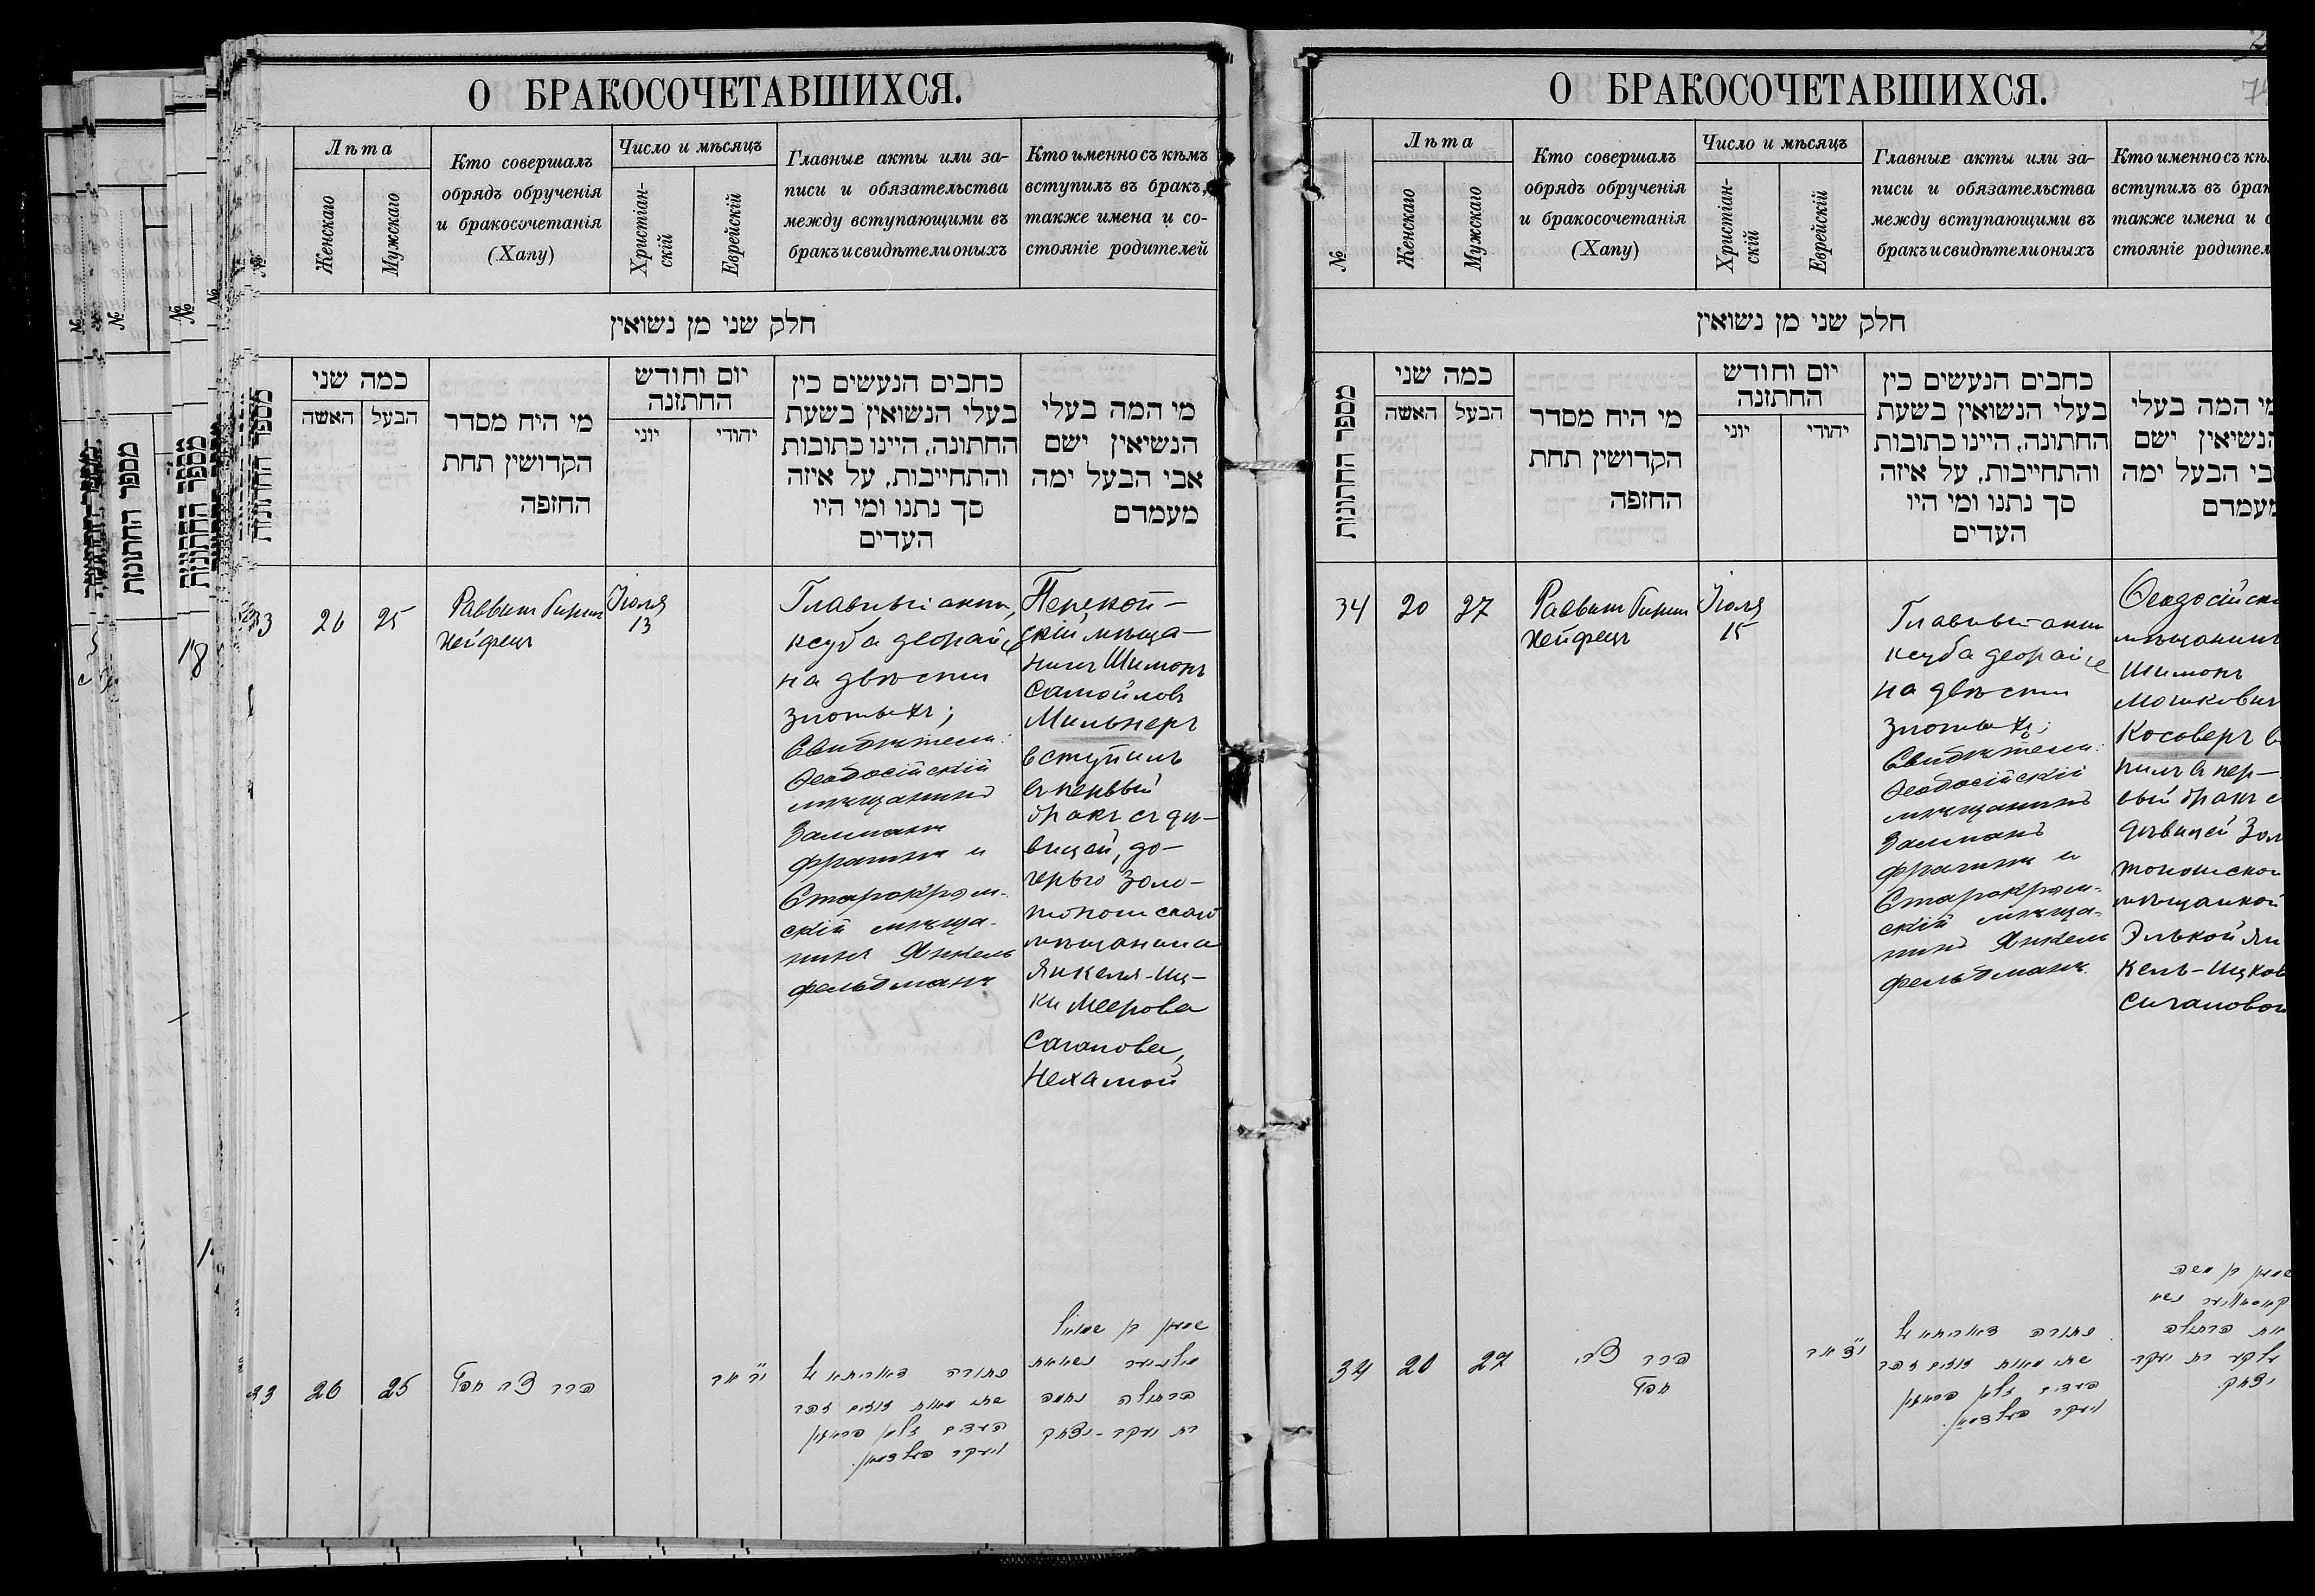 О БРАКОСОЧЕТАВШИХСЯ.
№
Лѣта
Женскаго
Мужскаго
Кто совершалъ
обрядъ обрученія
и бракосочетанія
(Хапу)
Число и мѣсяцъ
Христіан-
скій
Еврейскій
Главные акты или за-
писи и обязательства
между вступающими въ
бракъ и свидѣтели оныхъ
Кто именно съ кѣмъ
вступилъ въ бракъ,
также имена и со-
стояніе родителей
חלק שני מן נשואין
מספר החתונות
כמה שני
האשה
הבעל
מי היח מסדר
הקדושין תחת
החזפה
יום וחודש
החתזנה
יוני
יהודי
כחבים הנעשים כין
בעלי הנשואין בשעת
החתונה, היינו כתובות
והתחייבות, על איזה
סך נתנו ומי היו
העדים
מי המה בעלי
הנשיאין ישם
אבי הבעל ימה
מעמדם
33
26
25
Раввинъ
Хейфецъ
Іюля
13
Главный актъ,
ксуба деорайсе
на двѣсти
злотыхъ;
Свидѣтели:
Ѳеодосійскій
мѣщанинъ
Залманъ
Фрашкъ и
Старокрым-
скій мѣща-
нинъ Янкель
Фельдманъ
Перекоп-
скій мѣща-
нинъ Шимонъ
Самойловъ
Мильнеръ
вступилъ
въ первый
бракъ съ дѣ-
вицей, до-
черью Золо-
тоношскаго
мѣщанина
Янкеля-Иц-
ки Меерова
Саганова,
Нехамой
33
26
25
שמעון בן שמואל
מילנער נשא את
הבתולה נחמה
בת יעקב-יצחק
О БРАКОСОЧЕТАВШИХСЯ.
№
Лѣта
Женскаго
Мужскаго
Кто совершалъ
обрядъ обрученія
и бракосочетанія
(Хапу)
Число и мѣсяцъ
Христіан-
скій
Еврейскій
Главные акты или за-
писи и обязательства
между вступающими въ
бракъ и свидѣтели оныхъ
Кто именно съ кѣ
вступилъ въ брак
также имена и с
стояніе родител
חלק שני מן נשואין
מספר החתונות
כמה שני
האשה
הבעל
מי היח מסדר
הקדושין תחת
החזפה
יום וחודש
החתזנה
יוני
יהודי
כחבים הנעשים כין
בעלי הנשואין בשעת
החתונה, היינו כתובות
והתחייבות, על איזה
סך נתנו ומי היו
העדים
מי המה בעלי
הנשיאין ישם
אבי הבעל ימה
מעמדם
34
20
27
Раввинъ
Хейфецъ
Іюля
15
Главный актъ
ксуба деорайсе
на двѣсти
злотыхъ;
Свидѣтели:
Ѳеодосійскій
мѣщанинъ
Залманъ
Фрашкъ и
Старокрым-
скій мѣща-
нинъ Янкель
Фельдманъ
Ѳеодосійск
мѣщанинъ
Шимонъ
Мошкович
Косоверъ в
пилъ въ пер-
вый бракъ с
дѣвицей Зол
тоношской
мѣщанкой
Элькой Ян
кель-Ицков
Сигановой
34
20
27